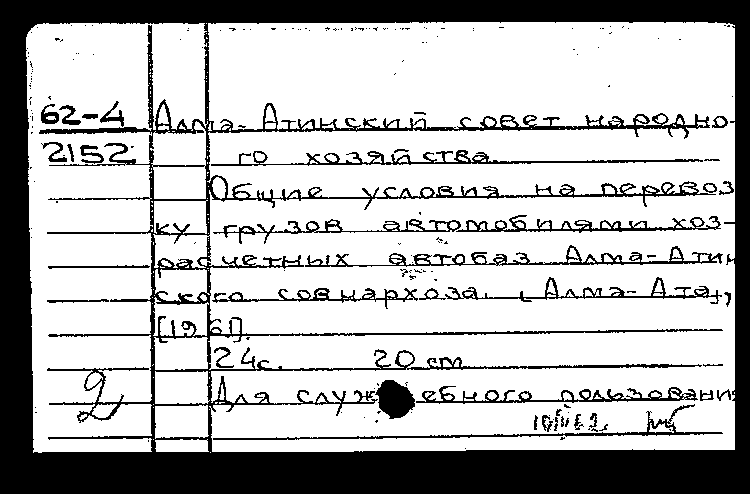 62-4 Алма-Атинский совет народно-
2152 го хозяйства.
Общие условия на перевоз
ку грузов автомобилями хоз-
расчетных автобаз Алма-Атин
ского совнархоза. [Алма-Ата],
[1961].
24с. 20 см
2 Для служебного пользования